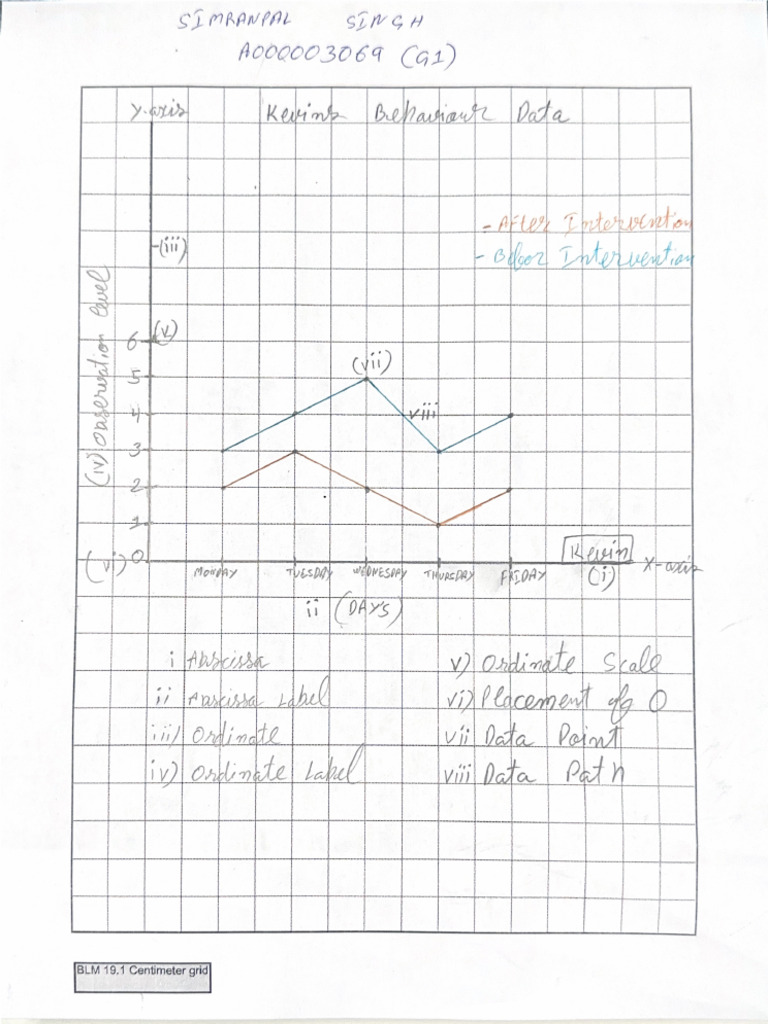 SIMRANPAL SINGH
A000003069 (G1)
Y-axis Kevin's Behaviour Data
- After Intervention
- Befor Intervention
(iii)
(iv) Observation level
6 (v)
5
4
3
2
1
0
(vi)
(vii)
viii
MONDAY TUESDAY WEDNESDAY THURSDAY FRIDAY
Kevin
(i)
X-axis
ii (DAYS)
i Abscissa
ii Abscissa Label
iii) Ordinate
iv) Ordinate Label
v) Ordinate Scale
vi) Placement of 0
vii Data Point
viii Data Path
BLM 19.1 Centimeter grid